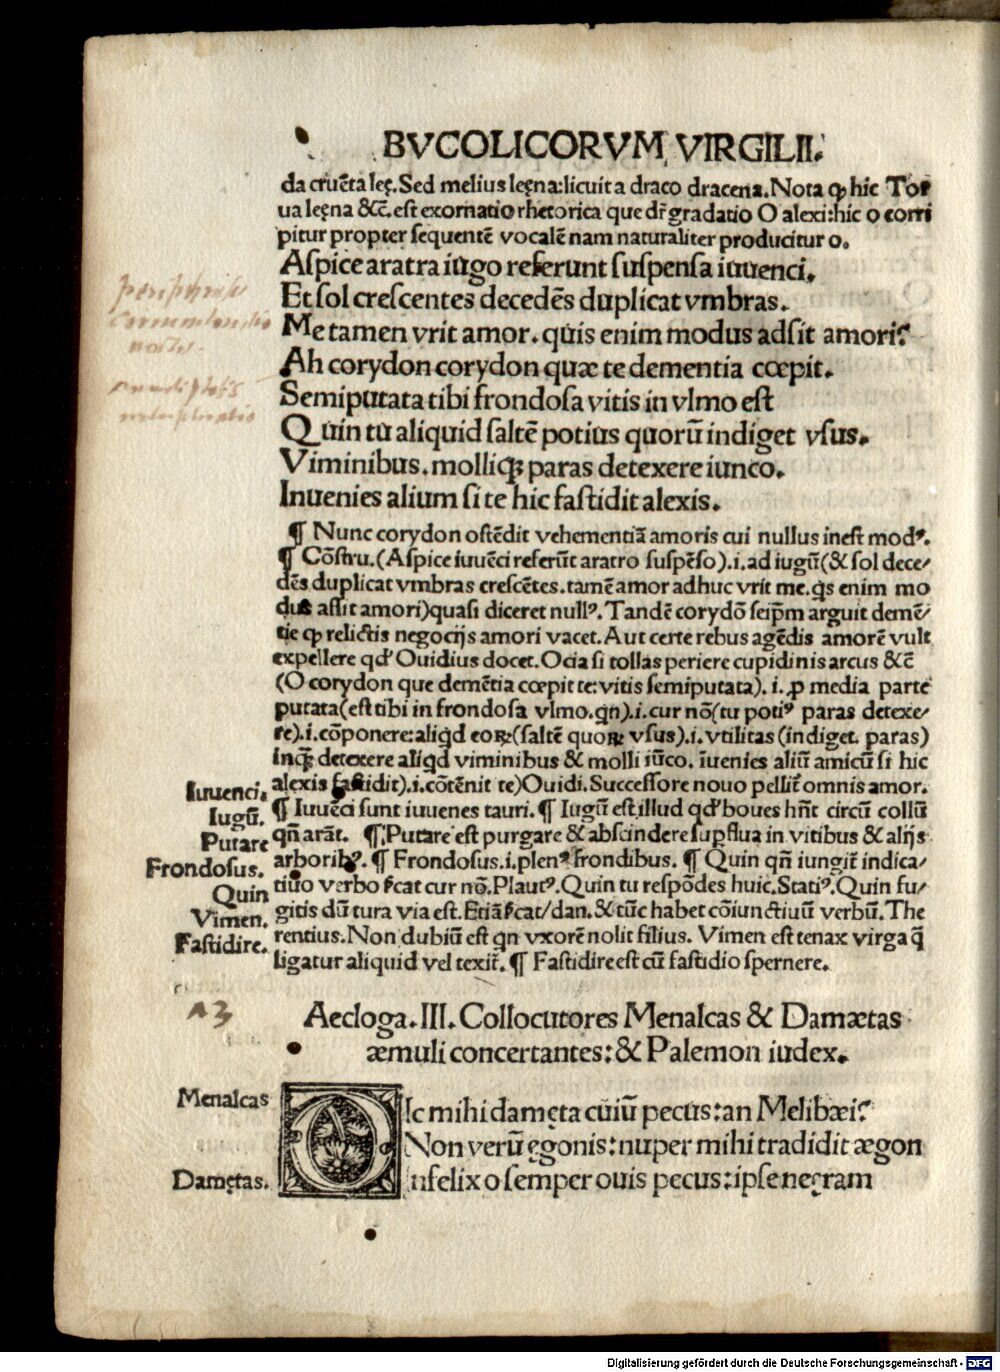 BVCOLICORVM VIRGILII.
da cruēta leę. Sed melius leęna: licuit a draco dracena. Nota ꝙ hic Tor
ua leęna &c̄. est exornatio rhetorica que dr̄ gradatio O alexi: hic o corri
pitur propter sequentē vocalē nam naturaliter producitur o.
Aspice aratra iugo referunt suspensa iuuenci.
Et sol crescentes decedēs duplicat vmbras.
Me tamen vrit amor. quis enim modus adsit amori?
Ah corydon corydon quæ te dementia cœpit.
Semiputata tibi frondosa vitis in vlmo est
Quin tu aliquid saltē potius quorū indiget vsus.
Viminibus. molliqꝫ paras detexere iunco.
Inuenies alium si te hic fastidit alexis.
¶ Nunc corydon ostēdit vehementiā amoris cui nullus inest modꝰ.
¶ Cōstru. (Aspice iuuēci referūt aratro suspēso). i. ad iugū (& sol dece/
dēs duplicat vmbras crescētes. tamē amor adhuc vrit me. q̇s enim mo
dus assit amori) quasi diceret nullꝰ. Tandē corydō seip̄m arguit demē/
tie ꝙ relictis negocijs amori vacet. Aut certe rebus agēdis amorē vult
expellere qd' Ouidius docet. Ocia si tollas periere cupidinis arcus &c̄
(O corydon que demētia cœpit te: vitis semiputata). i. ꝓ media parte
putata (est tibi in frondosa vlmo. qn̄). i. cur nō (tu potiꝰ paras detexe/
re). i. cōponere: aliq̇d eoꝝ: (saltē quoꝝ vsus). i. vtilitas (indiget. paras)
inqꝫ detexere aliq̇d viminibus & molli iūco. īuenies aliū amicū si hic
alexis fastidit). i. cōtēnit te) Ouidi. Successore nouo pellit̄ omnis amor.
Iuuenci. ¶ Iuuēci sunt iuuenes tauri. ¶ Iugū est illud qd' boues hn̄t circū collū
Iugū. qn̄ arāt. ¶ Putare est purgare & abscindere suꝑflua in vitibus & alijs
Putare arboribꝰ. ¶ Frondosus. i. plenꝰ frondibus. ¶ Quin qn̄ iungit̄ indica/
Frondosus. tiuo verbo s̄cat cur nō. Plautꝰ. Quin tu respōdes huic. Statiꝰ. Quin fu/
Quin gitis dū tura via est. Etiā s̄cat/dan. & tūc habet cōiunctiuū verbū. The
Vimen. rentius. Non dubiū est qn vxorē nolit filius. Vimen est tenax virga q̄
Fastidire. ligatur aliquid vel texit̄. ¶ Fastidire est cū fastidio spernere.
Aecloga. III. Collocutores Menalcas & Damætas
æmuli concertantes: & Palemon iudex.
Menalcas
Ic mihi damęta cuiū pecus: an Melibæi?
Non verū ęgonis: nuper mihi tradidit ægon
Damętas.
Infelix o semper ouis pecus: ipse neęram
Digitalisierung gefördert durch die Deutsche Forschungsgemeinschaft - DFG